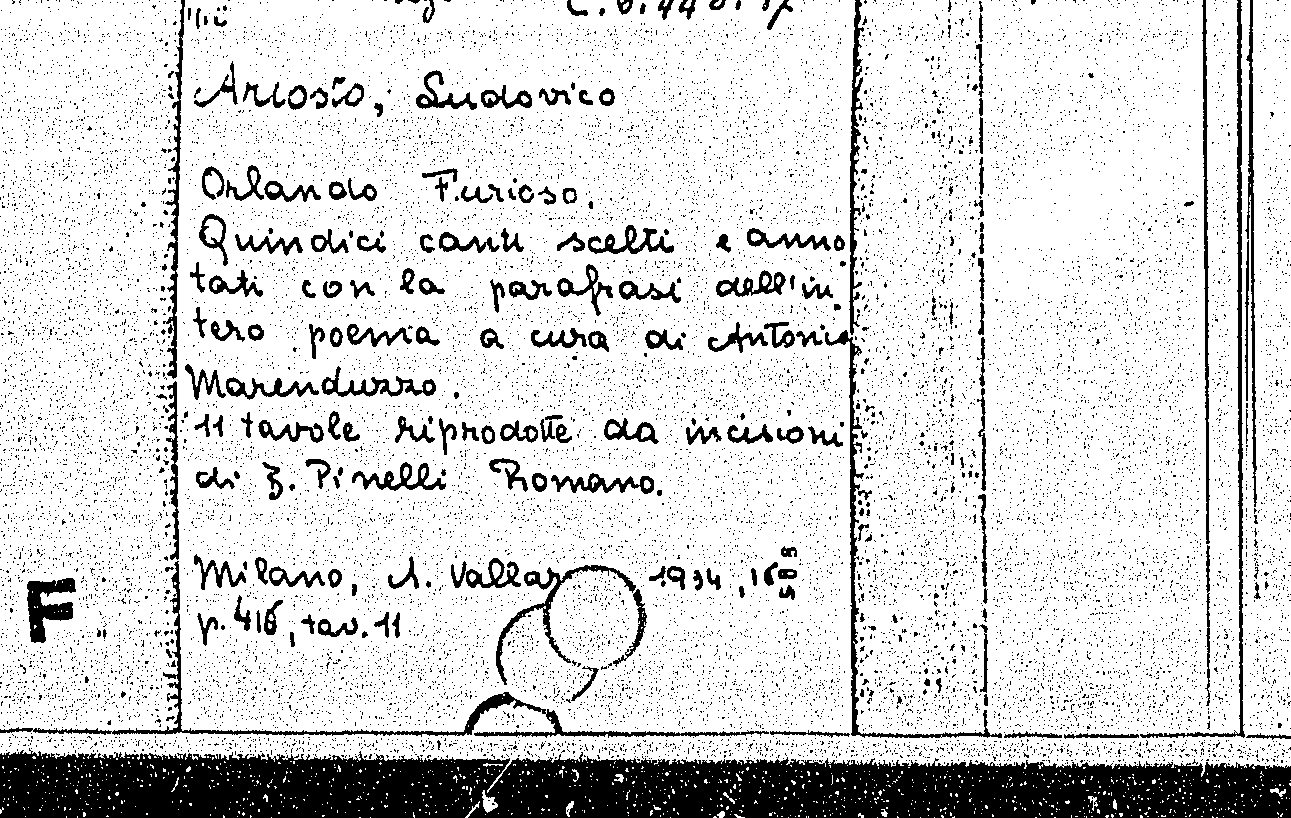 Ariosto, Ludovico
Orlando Furioso.
Quindici canti scelti e anno
tati con la parafrasi dell'in
tero poema a cura di Antonio
Marenduzzo.
11 tavole riprodotte da incisioni
di B. Pinelli Romano.
Milano, A. Vallar 1934, 16
p. 416, tav. 11
F